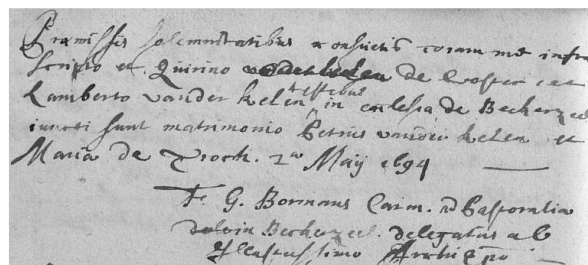 Præmissis solemnitatibus consuetis coram me infra
scripto et Quirino de Coster et
Lamberto vander kelen testibus in ecclesia de Beckerzeel
iuncti sunt matrimonio Petrus vander kelen et
Maria de Troch. 2a Maij 1694
F. G. Bormans Carm. ad Pastoralia
in Beckerzeel delegatus ab
Illustrissimo Archiepo